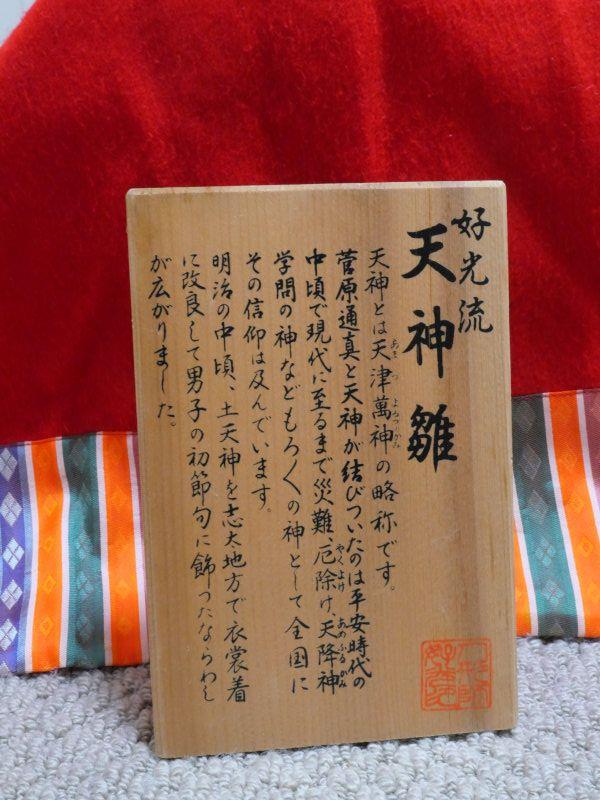 好光流
天神雛
天神とは天津萬神の略称です。
あまつ よろつかみ
菅原通真と天神が結びついたのは平安時代の
中頃で現代に至るまで災難、厄除け、天降神
やくよけ あめふるかみ
学問の神などもろ〱の神として全国に
その信仰は及んでいます。
明治の中頃、土天神を志太地方で衣裳着
に改良して男子の初節句に飾ったならわし
が広がりました。